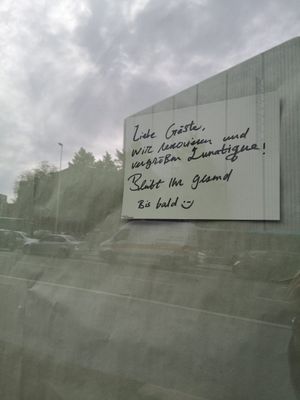 Liebe Gäste,
wir renovieren und
vergrößern Lunatique!
Bleibt Ihr gesund
Bis bald